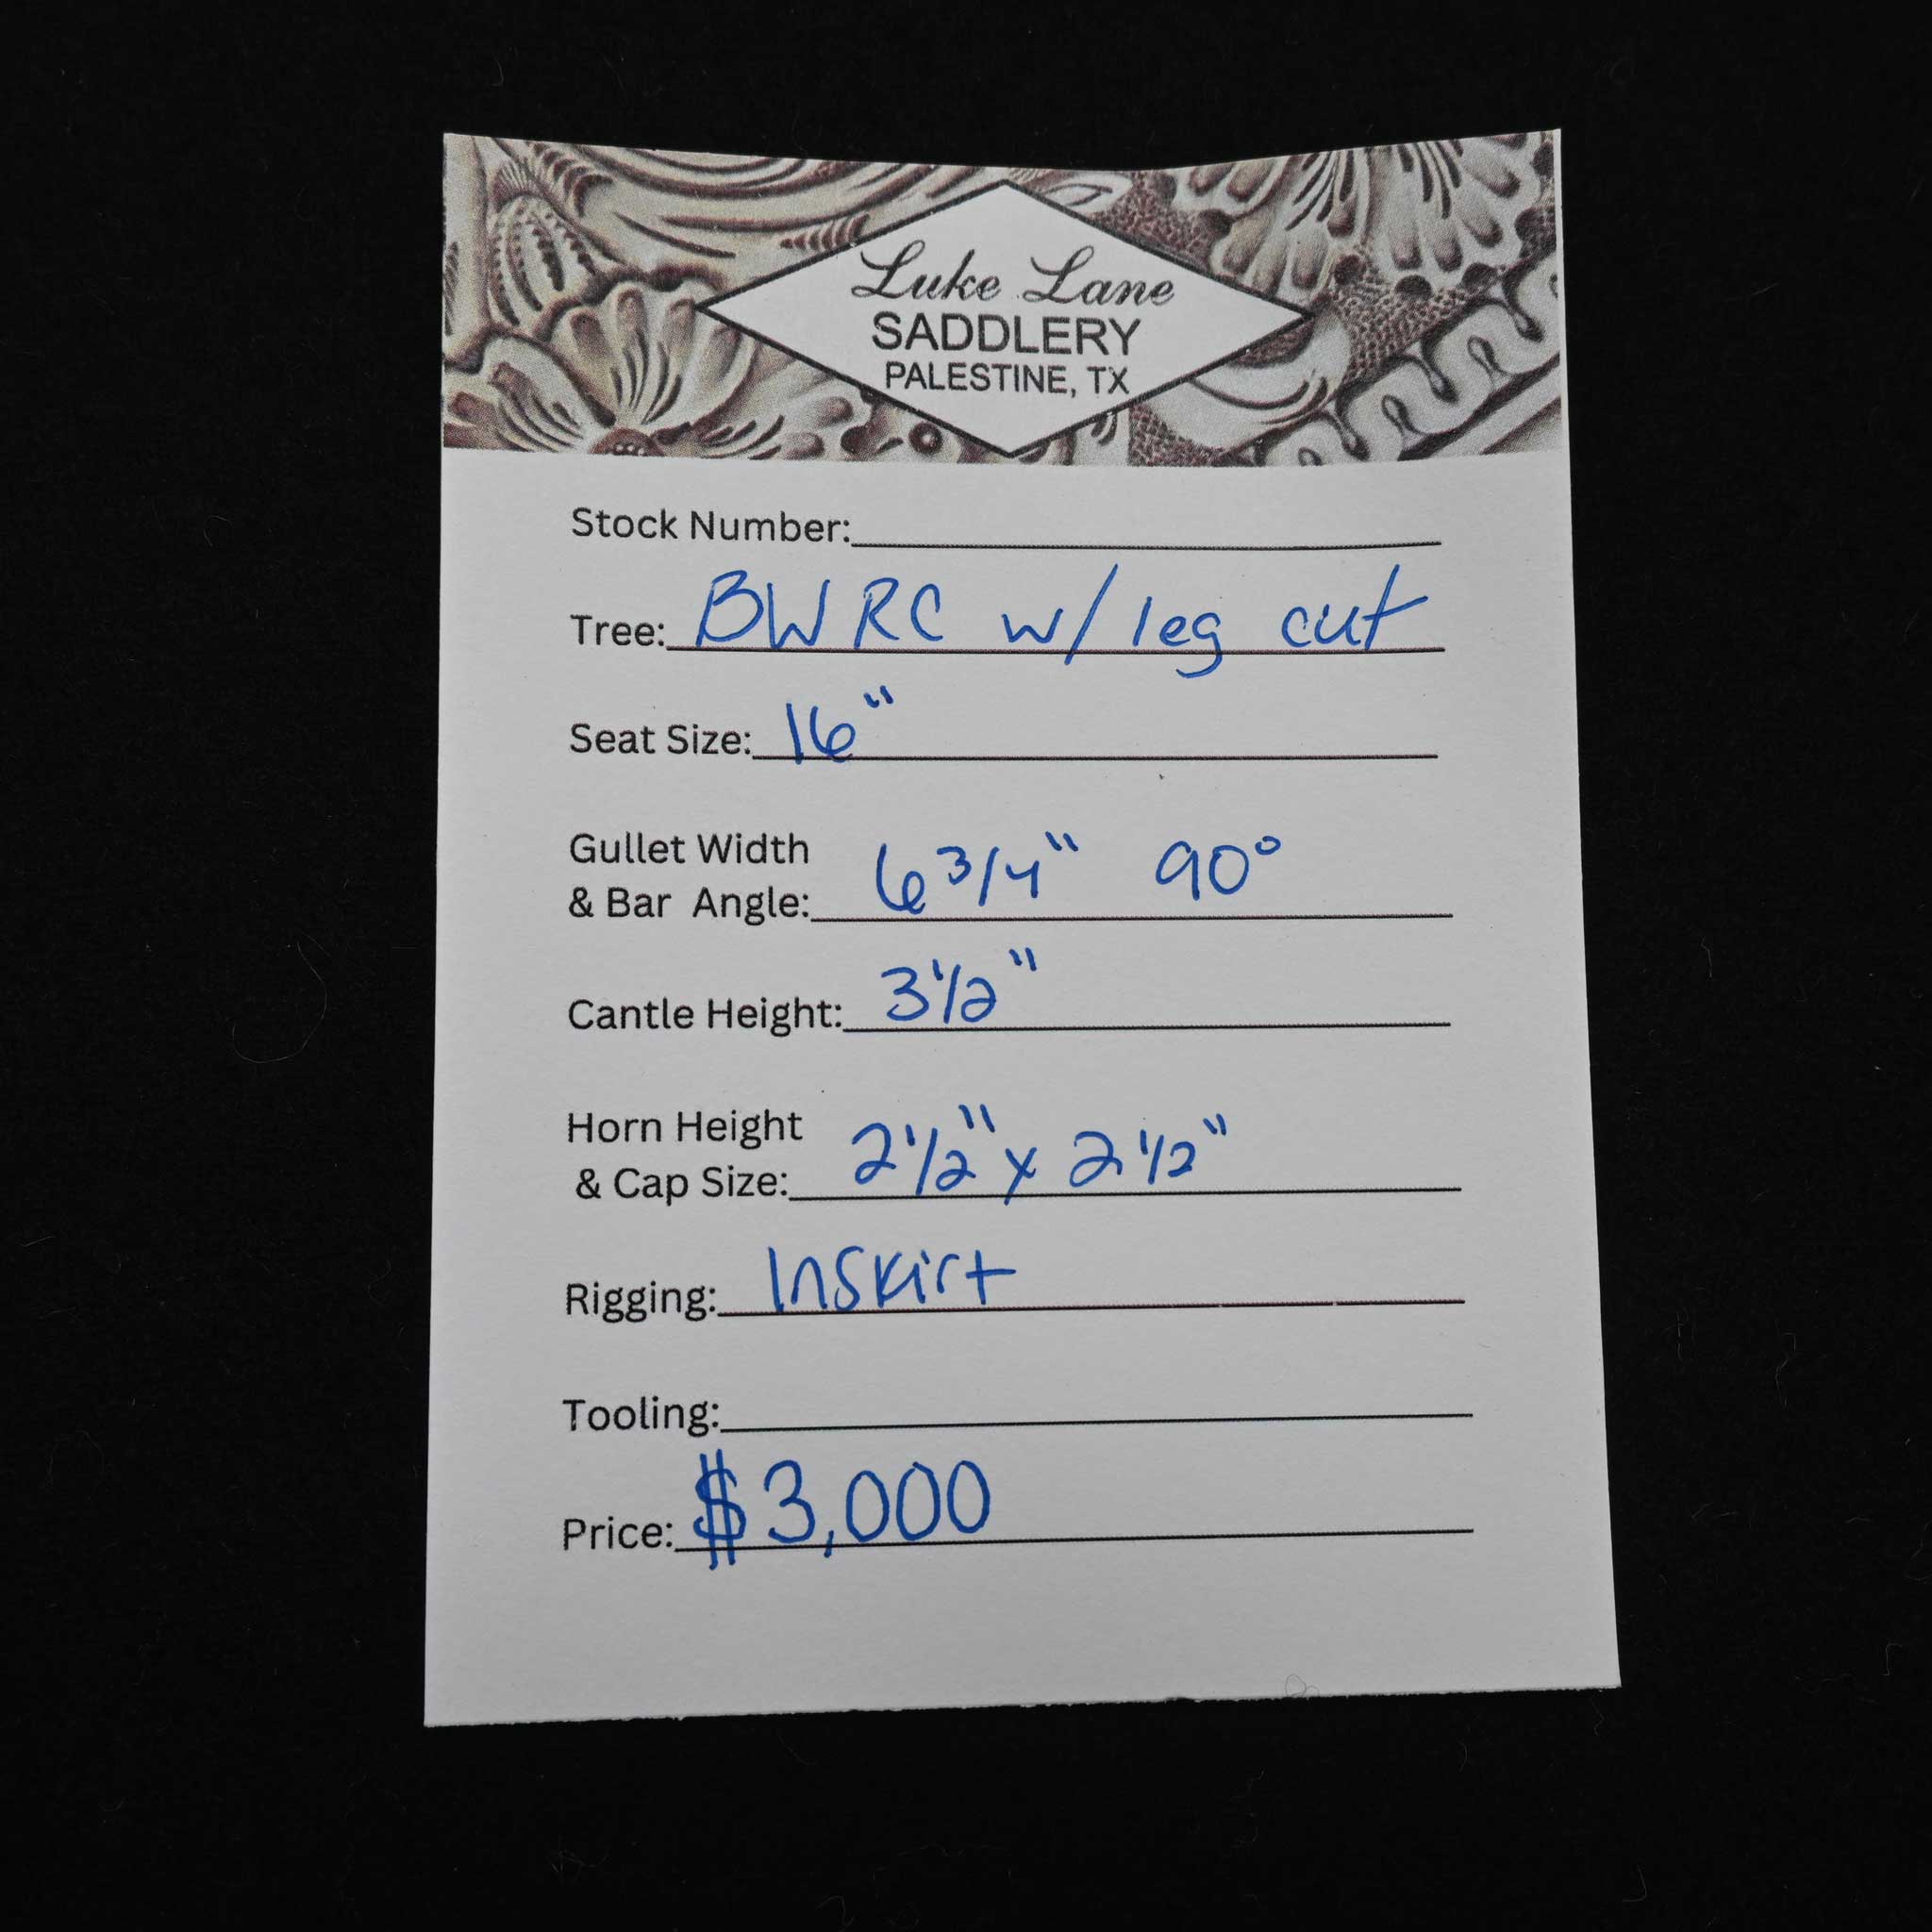 Luke Lane
SADDLERY
PALESTINE, TX
Stock Number:
Tree: BWRC w/ leg cut
Seat Size: 16"
Gullet Width
& Bar Angle: 6 3/4" 90°
Cantle Height: 3 1/2"
Horn Height
& Cap Size: 2 1/2" x 2 1/2"
Rigging: Inskirt
Tooling:
Price: $3,000